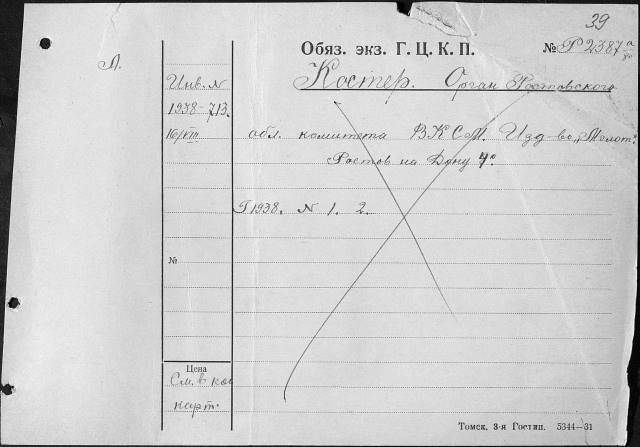 39
Обяз. экз. Г. Ц. К. П. № Р 2387 а/30
Л.
Инв. N
1938-713.
16/VIII
Костер. Орган Ростовского
обл. комитета В.К.С.М. Изд-во „Молот".
Ростов на Дону 4°
Г 1938. N 1. 2.
№
Цена
См. в кон
карт.
Томск, 3-я Гостип. 5344—31